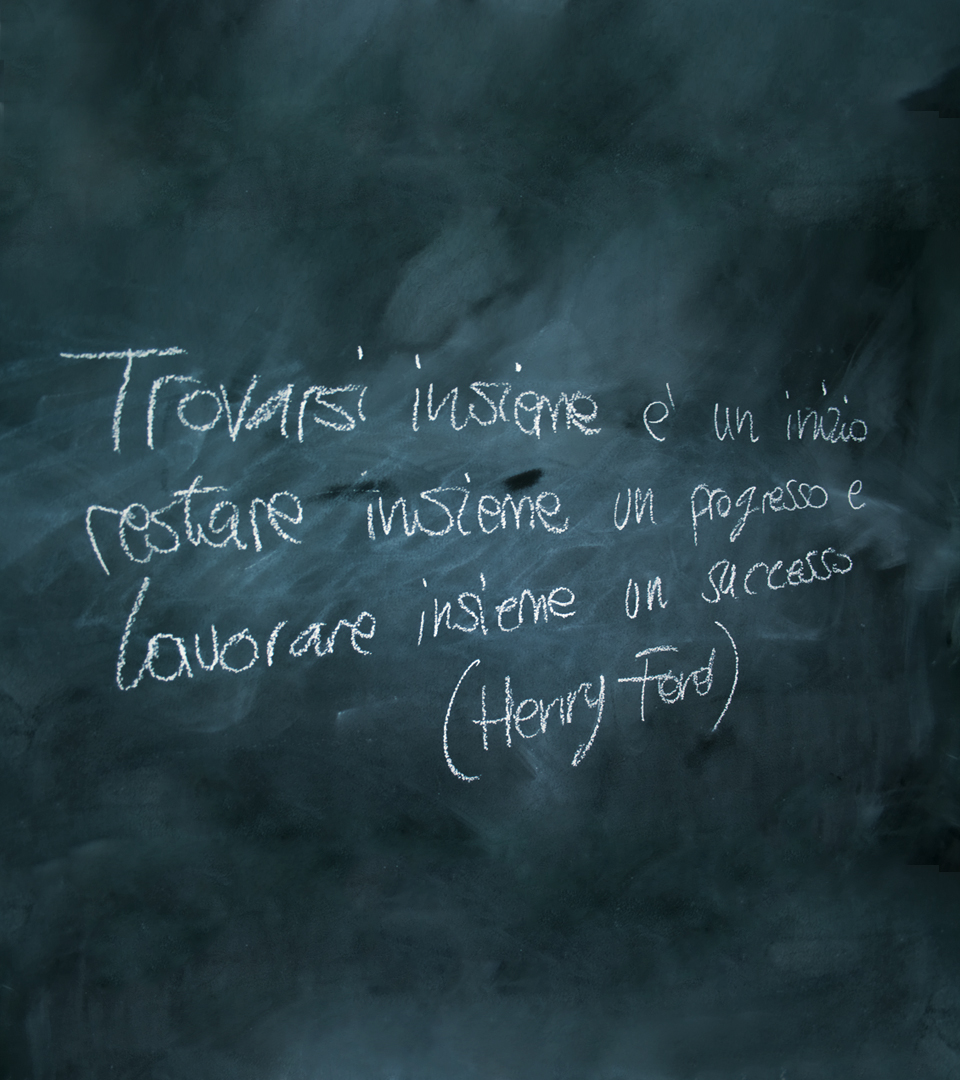 Trovarsi insieme e' un inizio
restare insieme un progresso e
lavorare insieme un successo
(Henry Ford)